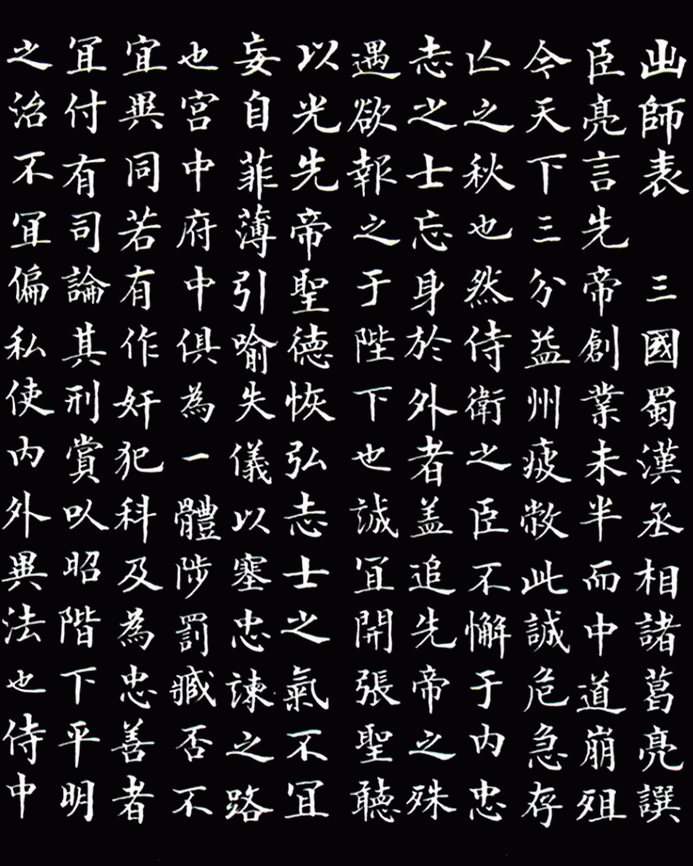 出師表 三國蜀漢丞相諸葛亮譔
臣亮言先帝創業未半而中道崩殂
今天下三分益州疲敝此誠危急存
亾之秋也然侍衛之臣不懈于內忠
志之士忘身於外者盖追先帝之殊
遇欲報之于陛下也誠冝開張聖聽
以光先帝聖德恢弘志士之氣不冝
妄自菲薄引喻失儀以塞忠諫之路
也宮中府中俱為一體陟罰臧否不
宜異同若有作奸犯科及為忠善者
冝付有司論其刑賞㕥昭階下平明
之治不冝偏私使內外異法也侍中